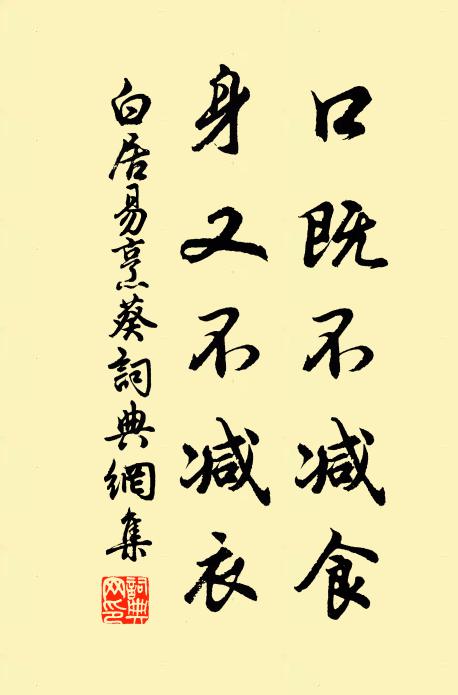 口既不减食
身又不减衣
白居易烹葵詞典網集
詞典网印